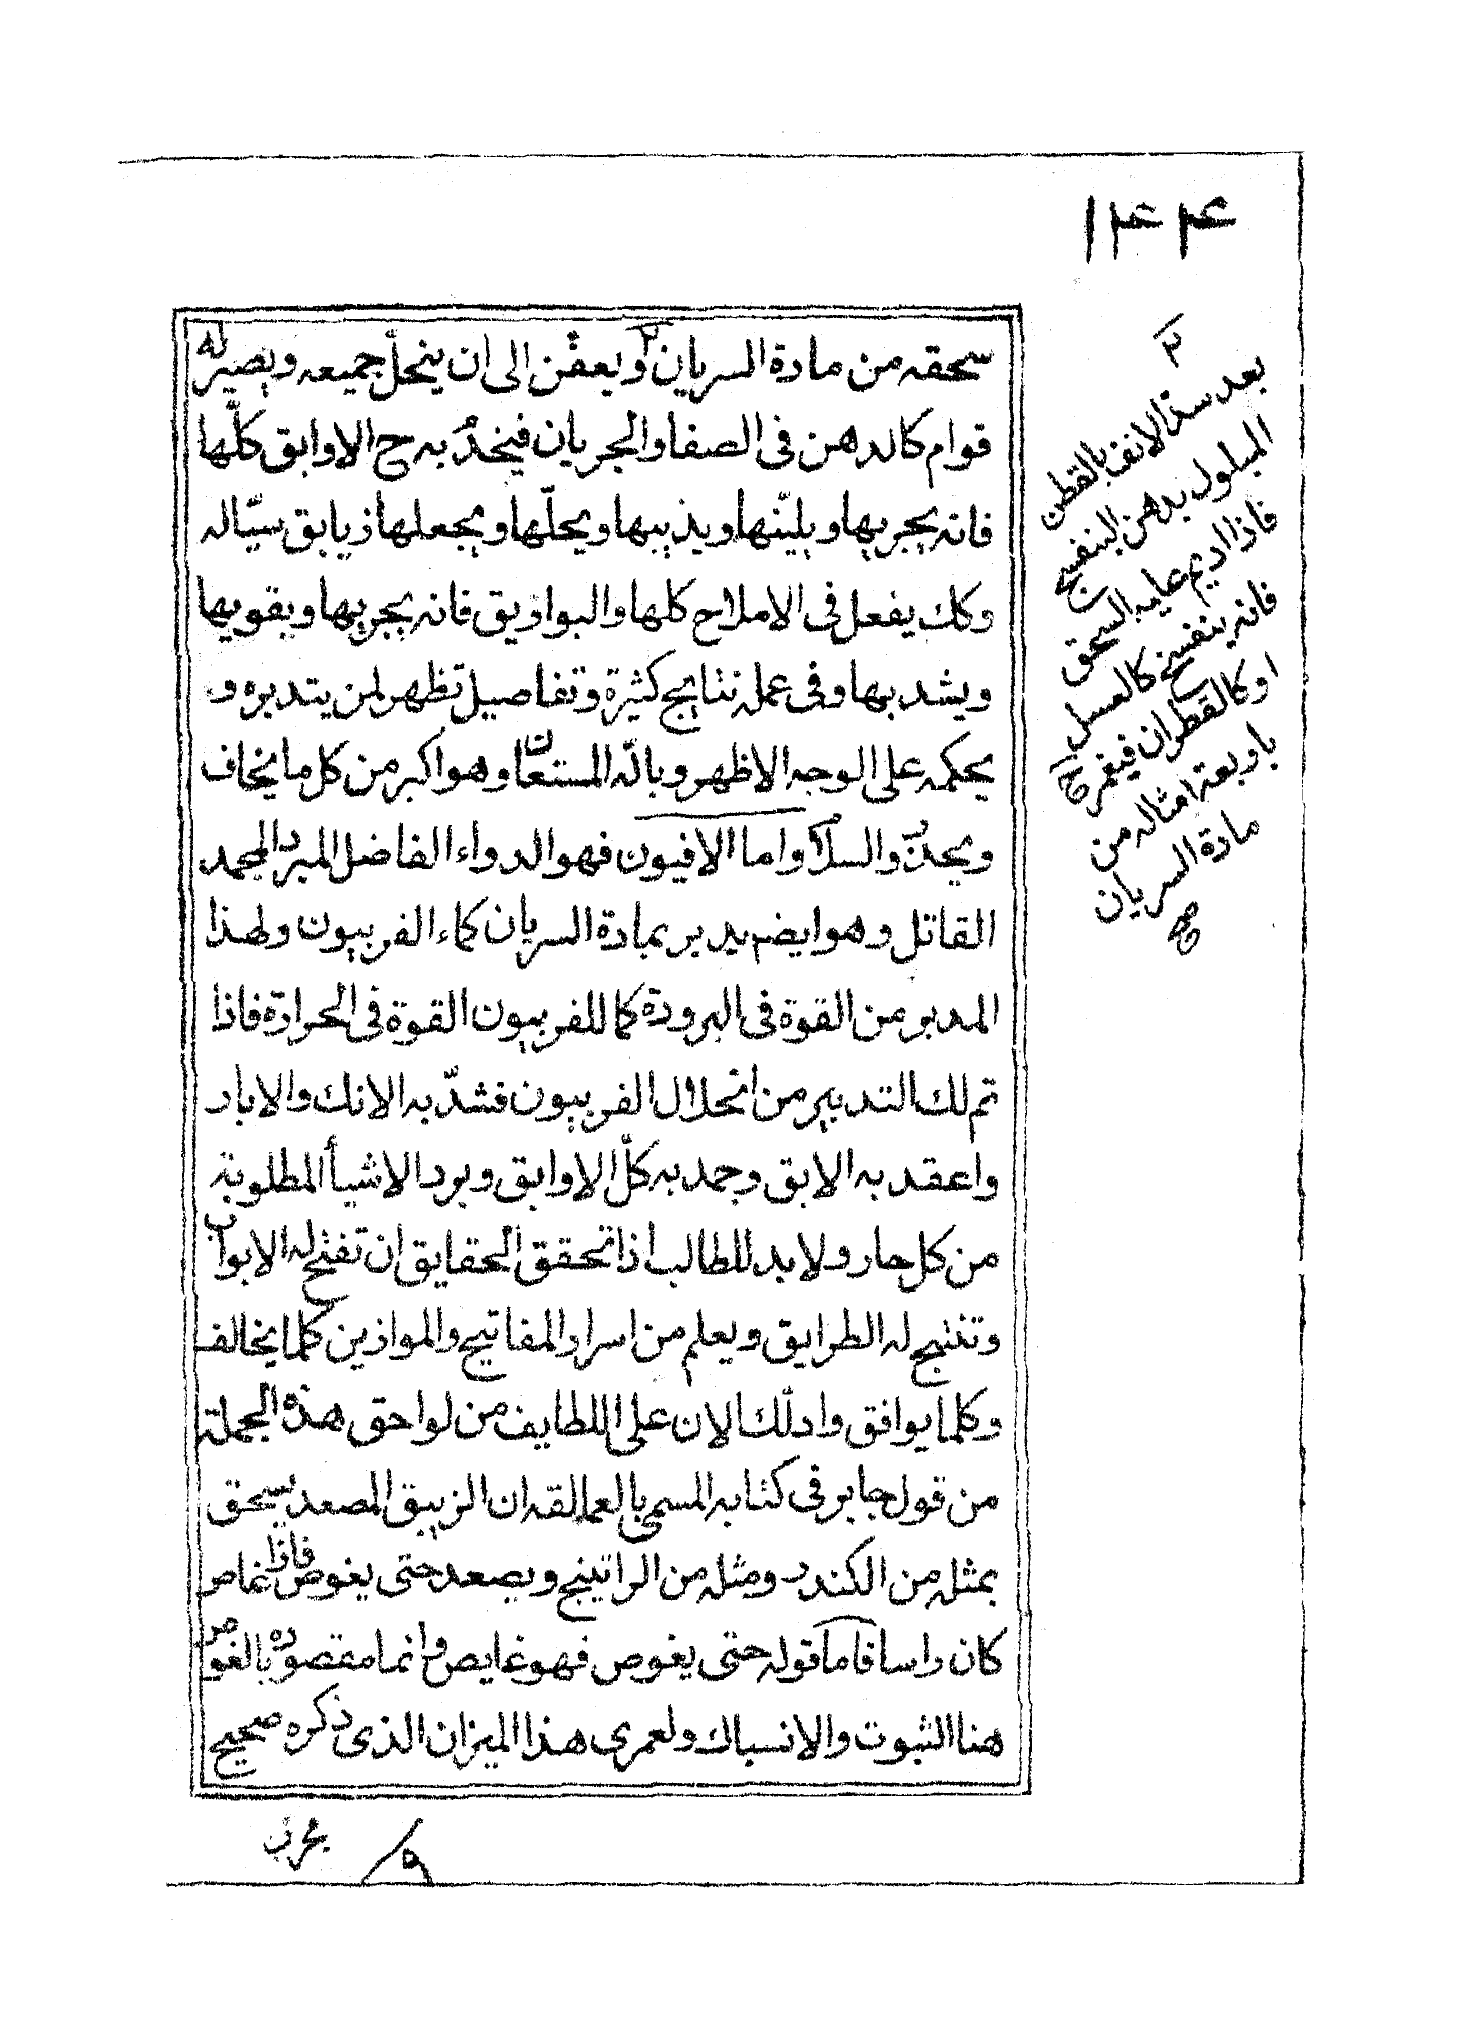 ١٤٤
سحقه من مادة السريان ويعفن الى ان ينحل جميعه ويصير له
قوام كالدهن فى الصفا والجريان فينحدّ به ح الاوابق كلّها
فانه يجريها ويليّنها ويذيبها ويحلّها ويجعلها زيابق سيّاله
وكك يفعل فى الاملاح كلها والبواريق فانه يجريها ويقويها
ويشد بها وفى عمله نتايج كثيرة وتفاصيل تظهر لمن يتدبره و
يحكمه على الوجه الاظهر وبالله المستعان وهو اكبر من كل ما يخاف
ويحذر والسلام واما الافيون فهو الدواء الفاضل المبرد المجمد
القاتل وهو ايضم يدبر بمادة السريان كماء الفربيون ولهذا
المدبر من القوة فى البرودة كما للفربيون القوة فى الحرارة فاذا
تم لك التدبير من انحلال الفربيون فشدّ به الانك والابار
واعقد به الابق وجمد به كلّ الاوابق وبرد الاشيأ المطلوبة
من كل حار ولا بد للطالب اذا تحقق الحقايق ان تفتح له الابواب
وتنتج له الطرايق ويعلم من اسرار المفاتيح والموازين كلما يخالف
وكلما يوافق وادلّك الان على اللطايف من لواحق هذه الجملة
من قول جابر فى كتابه المسمى بالعمالقه ان الزيبق المصعد يسحق
بمثله من الكندر ومثله من الراتينج ويصعد حتى يغوص فاذا غاص
كان راسا فاما قوله حتى يغوص فهو غايص وانما مقصوده بالغوص
هنا الثبوت والانسباك ولعمرى هذا الميزان الذى ذكره صحيح
مجرب
٢
بعد سدّ الانف بالقطن
المبلول بدهن البنفسج
فاذا اديم عليه السحق
فانه ينفسخ كالعسل
او كالقطران فيغمر ح
باربعة امثاله من
مادة السريان
صح